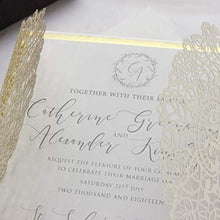 G
TOGETHER WITH THEIR
Catherine Greene
AND
Alexander
REQUEST THE PLEASURE OF YOUR
TO CELEBRATE THEIR MARRIAGE
SATURDAY 21ST JULY
TWO THOUSAND AND EIGHTEEN